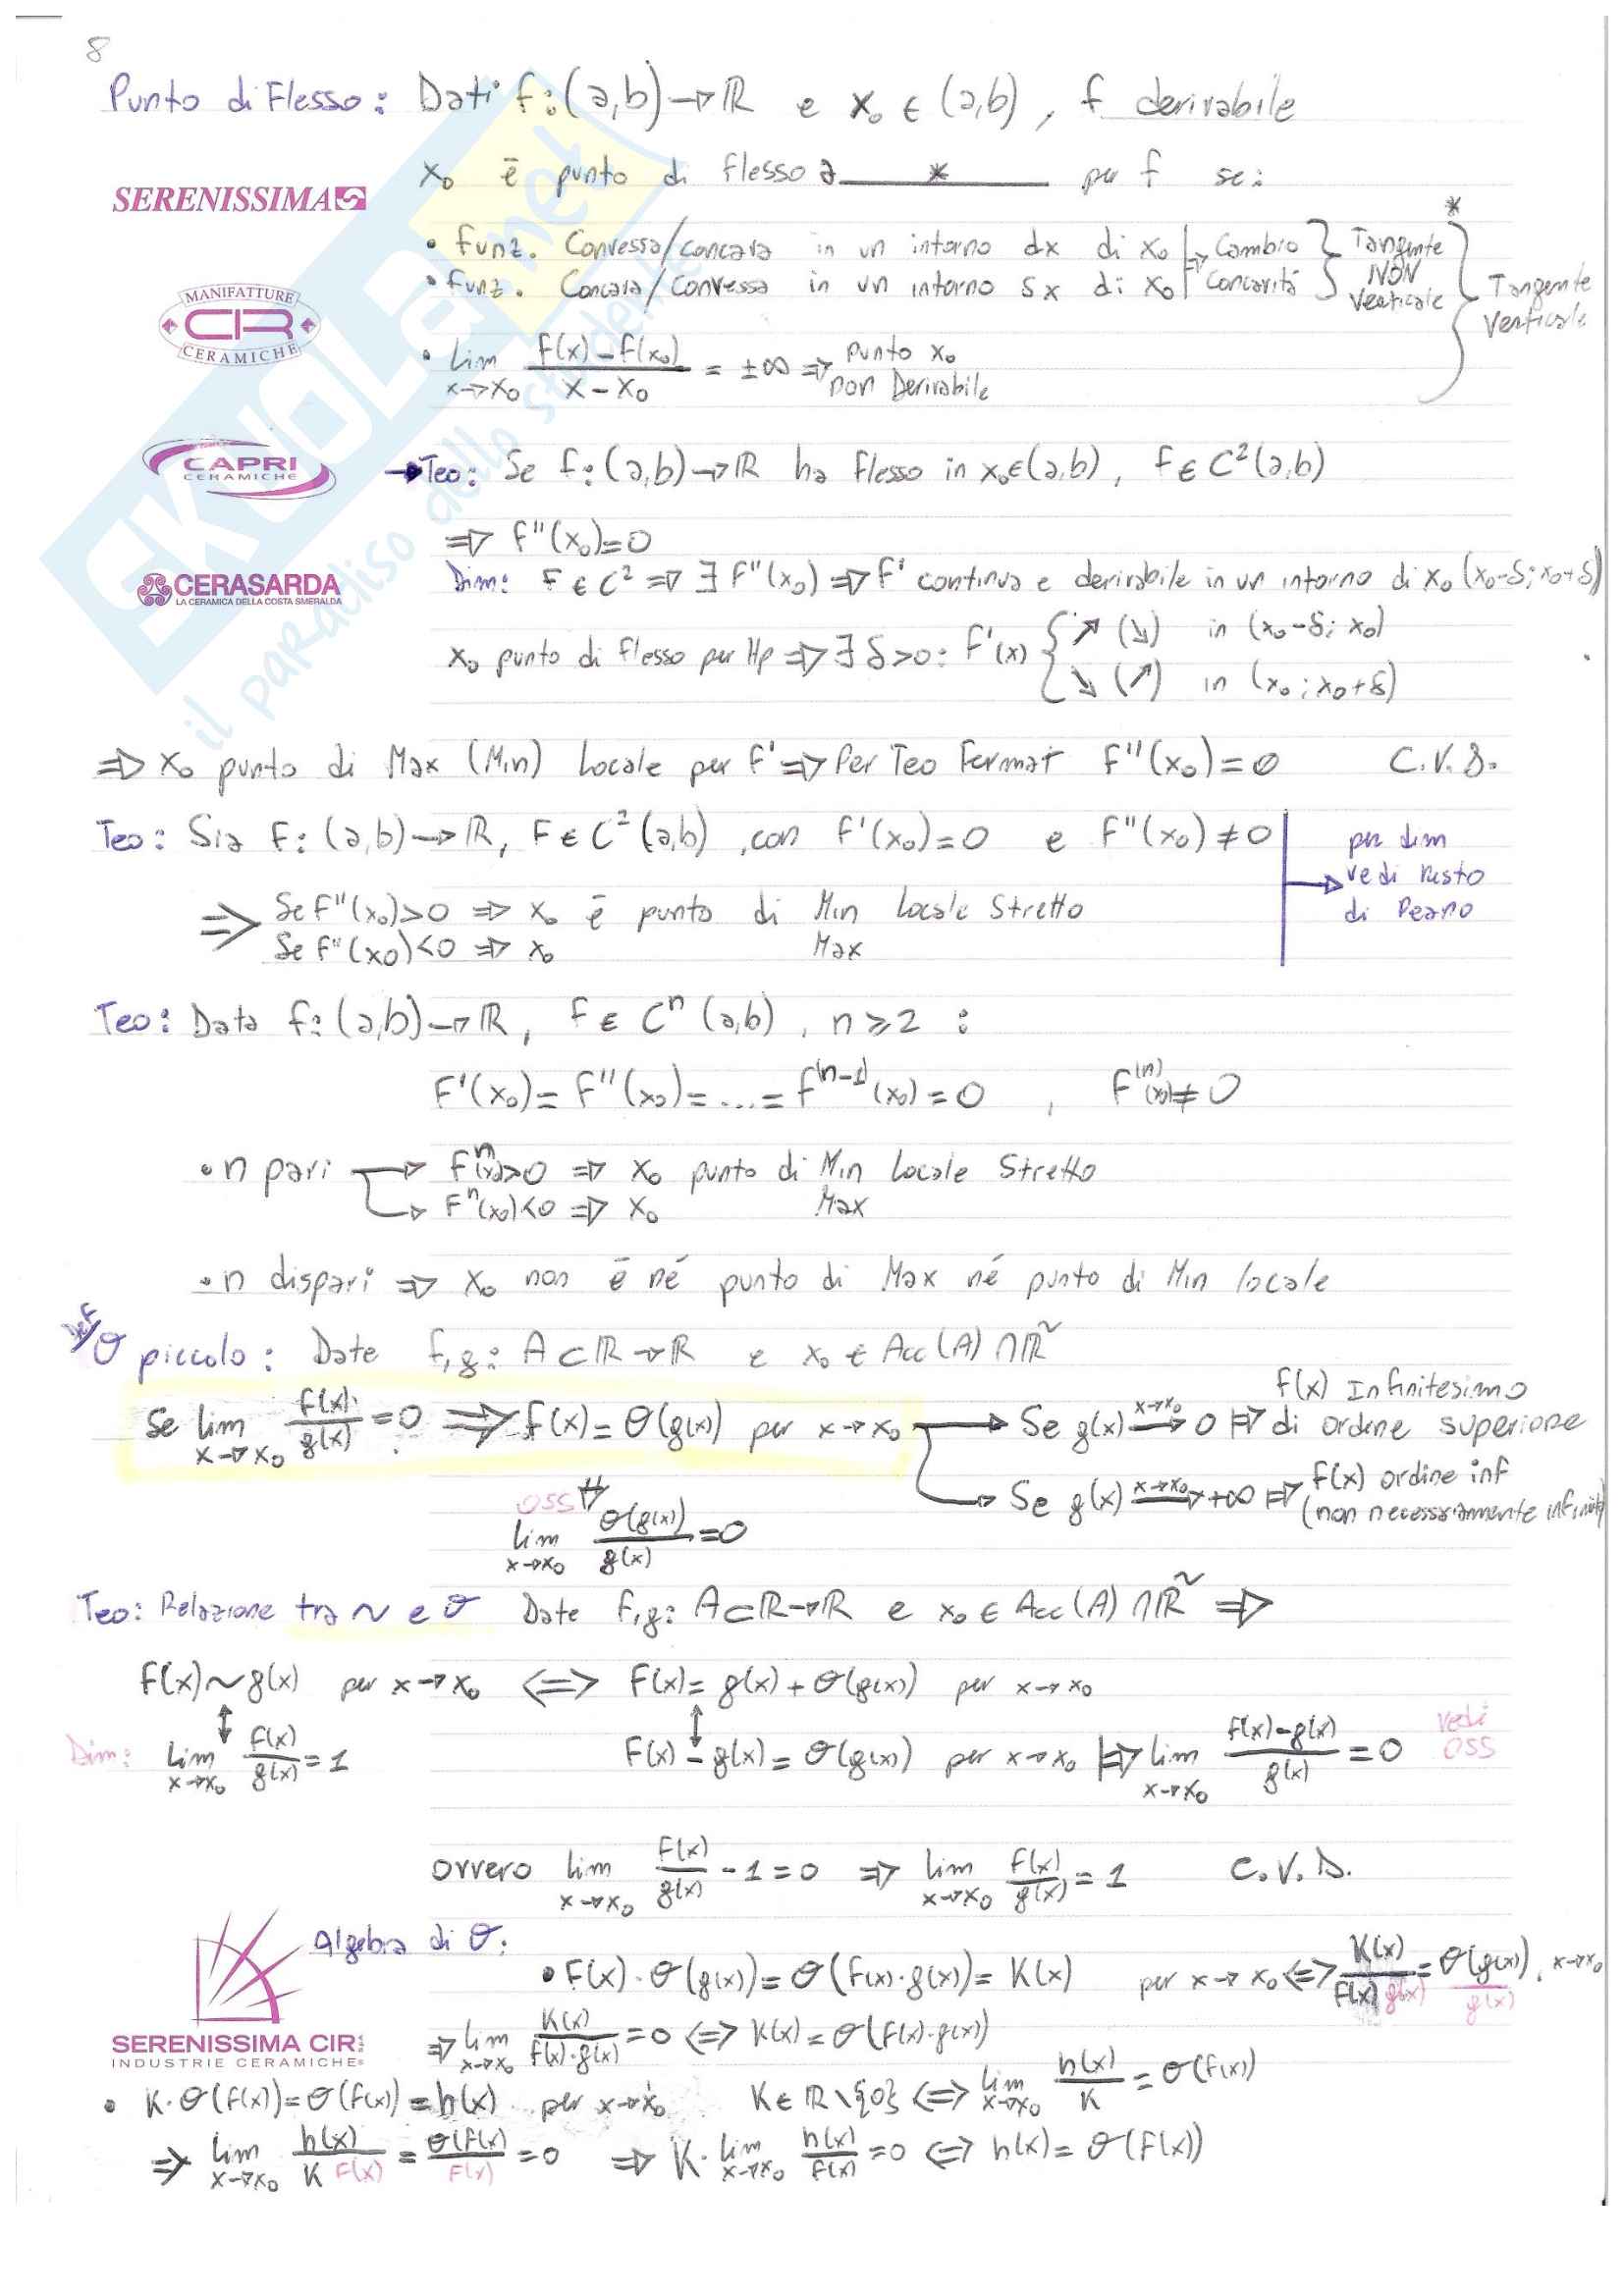 8
Punto di Flesso: Dati f:(a,b)→ℝ e x₀ ∈ (a,b), f derivabile
x₀ è punto di flesso a ____*____ per f se:
SERENISSIMA
*
• funz. Convessa/concava in un intorno dx di x₀ ⇒ Cambio } Tangente
• funz. Concava/Convessa in un intorno sx di x₀ Concavità } NON Verticale
Tangente Verticale
MANIFATTURE
CIR
CERAMICHE
• lim x→x₀ (f(x)-f(x₀))/(x-x₀) = ±∞ ⇒ punto x₀ non Derivabile
CAPRI
CERAMICHE
→ Teo: Se f:(a,b)→ℝ ha flesso in x₀∈(a,b), f∈C²(a,b)
⇒ f''(x₀)=0
CERASARDA
LA CERAMICA DELLA COSTA SMERALDA
Dim: f∈C² ⇒ ∃ f''(x₀) ⇒ f' continua e derivabile in un intorno di x₀ (x₀-δ;x₀+δ)
x₀ punto di flesso per Hp ⇒ ∃ δ>0: f'(x) { ↗ (↘) in (x₀-δ; x₀)
↘ (↗) in (x₀; x₀+δ)
SKUOLA.net
il paradiso dello studente
⇒ x₀ punto di Max (Min) Locale per f' ⇒ Per Teo Fermat f''(x₀)=0 C.V.D.
Teo: Sia f:(a,b)→ℝ, f∈C²(a,b), con f'(x₀)=0 e f''(x₀)≠0 | per dim
→ vedi resto
di Peano
⇒ Se f''(x₀)>0 ⇒ x₀ è punto di Min Locale Stretto
Se f''(x₀)<0 ⇒ x₀ Max
Teo: Data f:(a,b)→ℝ, f∈Cⁿ(a,b), n≥2 :
f'(x₀)=f''(x₀)=...=f⁽ⁿ⁻¹⁾(x₀)=0 , f⁽ⁿ⁾(x₀)≠0
• n pari → fⁿ(x₀)>0 ⇒ x₀ punto di Min Locale Stretto
→ fⁿ(x₀)<0 ⇒ x₀ Max
• n dispari ⇒ x₀ non è né punto di Max né punto di Min locale
Def/ σ piccolo: Date f,g: A⊂ℝ→ℝ e x₀∈Acc(A)∩ℝ̃
f(x) Infinitesimo
Se lim x→x₀ f(x)/g(x) = 0 ⇒ f(x)=σ(g(x)) per x→x₀ → Se g(x) →(x→x₀) 0 ⇒ di ordine superiore
→ Se g(x) →(x→x₀) +∞ ⇒ f(x) ordine inf
(non necessariamente infinito)
OSS
lim x→x₀ σ(g(x))/g(x) = 0
Teo: Relazione tra ~ e σ Date f,g: A⊂ℝ→ℝ e x₀∈Acc(A)∩ℝ̃ ⇒
f(x)~g(x) per x→x₀ ⇔ f(x)=g(x)+σ(g(x)) per x→x₀
Dim: lim x→x₀ f(x)/g(x) = 1 f(x)-g(x)=σ(g(x)) per x→x₀ ⇒ lim x→x₀ (f(x)-g(x))/g(x) = 0 vedi OSS
ovvero lim x→x₀ f(x)/g(x) - 1 = 0 ⇒ lim x→x₀ f(x)/g(x) = 1 C.V.D.
Algebra di σ:
• f(x)·σ(g(x))=σ(f(x)·g(x))=K(x) per x→x₀ ⇔ K(x)/(f(x) g(x)) = σ(g(x))/g(x), x→x₀
⇒ lim x→x₀ K(x)/(f(x)·g(x)) = 0 ⇔ K(x)=σ(f(x)·g(x))
SERENISSIMA CIR
INDUSTRIE CERAMICHE
• K·σ(f(x))=σ(f(x))=h(x) per x→x₀ K∈ℝ\{0} ⇔ lim x→x₀ h(x)/K = σ(f(x))
⇒ lim x→x₀ h(x)/(K f(x)) = σ(f(x))/f(x) = 0 ⇒ K·lim x→x₀ h(x)/f(x) = 0 ⇔ h(x)=σ(f(x))